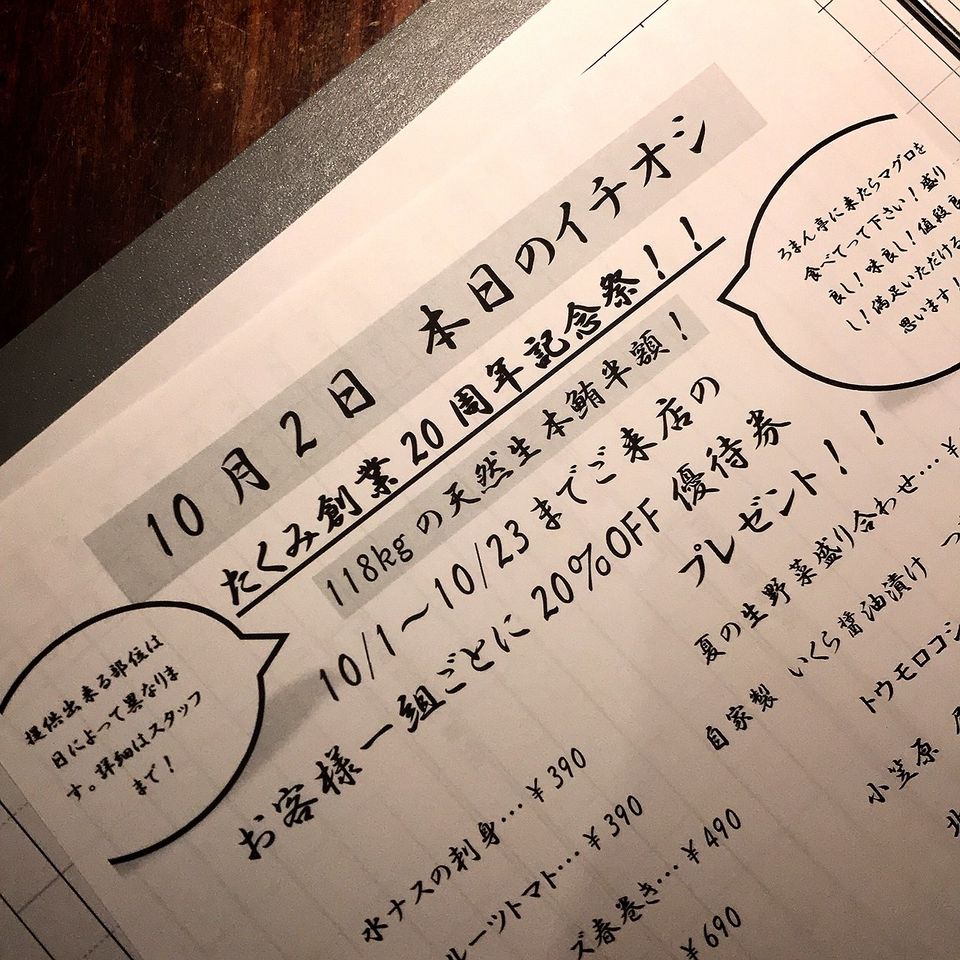 10月2日 本日のイチオシ
たくみ創業20周年記念祭!!
118kgの天然生本鮪半額!
10/1〜10/23までご来店の
お客様一組ごとに20%OFF優待券
プレゼント!!
ろまん亭に来たらマグロを
食べてって下さい!盛り
良し!味良し!値段良
し!満足いただける
思います!
提供出来る部位は
日によって異なりま
す。詳細はスタッフ
まで!
水ナスの刺身…¥390
ルーツトマト…¥390
ズ春巻き…¥490
¥690
夏の生野菜盛り合わせ…¥
自家製 いくら醤油漬け つ
トウモロコシ
小笠原
北